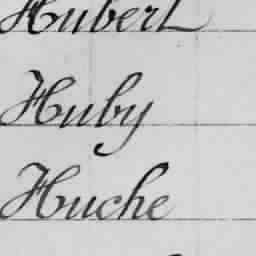 Hubert
Huby
Huche